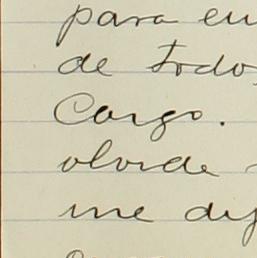 para en
de todo
Cargo.
olvide
me dej